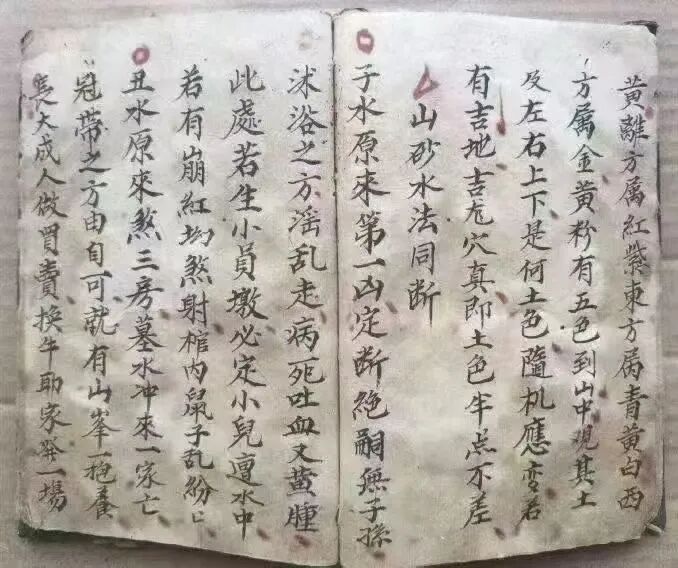 黄離方属紅紫東方属青黄白西
方属金黄粉有五色到山中現其土
及左右上下是何土色隨机應变若
有吉地吉龙穴真即土色半点不差
山砂水法同断
子水原來第一凶定断絶嗣無子孫
沭浴之方滛乱走病死吐血又黄腫
此處若生小員墩必定小兒遭水中
若有崩紅坳煞射棺内鼠子乱紛亡
丑水原來煞三房墓水冲來一家亡
冠帶之方由自可就有山峯一抱養
長大成人做買賣換牛助家發一場